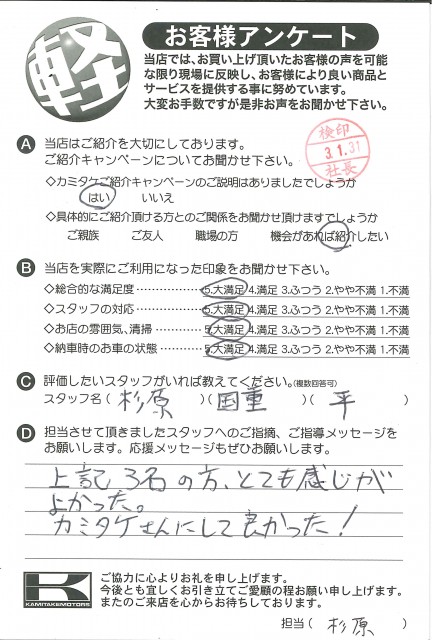 軽
お客様アンケート
当店では、お買い上げ頂いたお客様の声を可能
な限り現場に反映し、お客様により良い商品と
サービスを提供する事に努めています。
大変お手数ですが是非お声をお聞かせ下さい。
検印
3.1.31
社長
A 当店はご紹介を大切にしております。
ご紹介キャンペーンについてお聞かせ下さい。
◇カミタケご紹介キャンペーンのご説明はありましたでしょうか
はい いいえ
◇具体的にご紹介頂ける方とのご関係をお聞かせ頂けますでしょうか
ご親族 ご友人 職場の方 機会があれば紹介したい
B 当店を実際にご利用になった印象をお聞かせ下さい。
◇総合的な満足度 ………… 5.大満足 4.満足 3.ふつう 2.やや不満 1.不満
◇スタッフの対応 ………… 5.大満足 4.満足 3.ふつう 2.やや不満 1.不満
◇お店の雰囲気、清掃 ……… 5.大満足 4.満足 3.ふつう 2.やや不満 1.不満
◇納車時のお車の状態 ……… 5.大満足 4.満足 3.ふつう 2.やや不満 1.不満
C 評価したいスタッフがいれば教えてください。(複数回答可)
スタッフ名( 杉原 )( 国重 )( 平 )
D 担当させて頂きましたスタッフへのご指摘、ご指導メッセージを
お願いします。応援メッセージもぜひお願いします。
上記 3名の方、とても感じが
よかった。
カミタケさんにして良かった!
K
KAMITAKEMOTORS
ご協力に心よりお礼を申し上げます。
今後とも宜しくお引き立てご愛顧の程お願い申し上げます。
またのご来店を心からお待ちしております。
担当( 杉原 )